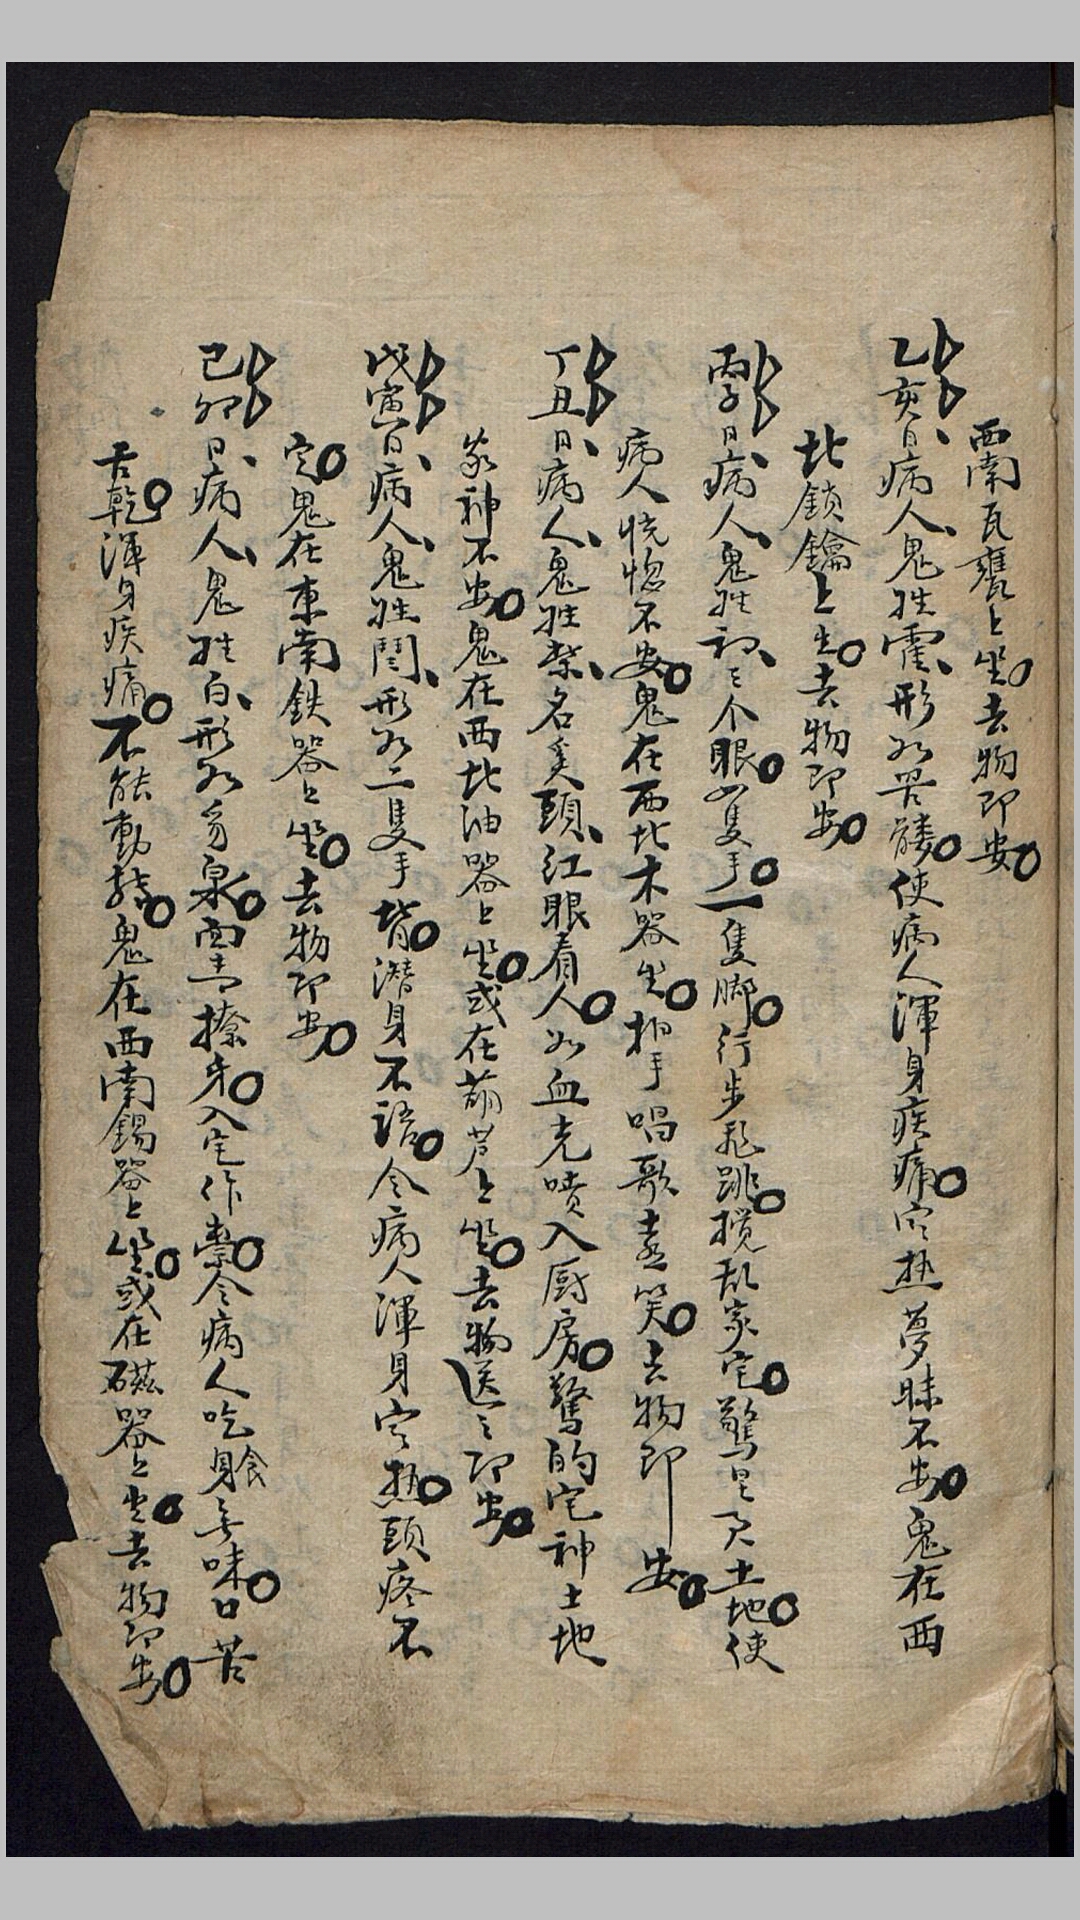 西南瓦甕上坐○去物即安○
乙亥日、病人、鬼姓霍、形如骷髏○使病人渾身疾痛○寒热夢昧不安○鬼在西
北鎖鑰上坐○去物即安○
丙子日、病人、鬼姓初、三个眼○一隻手○一隻脚○行步飛跳○搅乱家宅○驚土地○使
病人恍惚不安○鬼在西北木器坐○拍手唱歌喜笑○去物即安○
丁丑日、病人、鬼姓柴、名奚頭、紅眼看人○如血光噴入厨房○驚的宅神土地
家神不安○鬼在西北油器上坐○或在葫芦上坐○去物送之即安○
戊寅日、病人、鬼姓閆、形如二隻手背○潛身不語○令病人渾身寒热○頭疼不
定○鬼在東南鉄器上坐○去物即安○
己卯日、病人、鬼姓白、形如面青撩牙○入宅作祟○令病人吃食無味○口苦
舌乾○渾身疾痛○不能動転○鬼在西南錫器上坐○或在磁器上坐○去物即安○